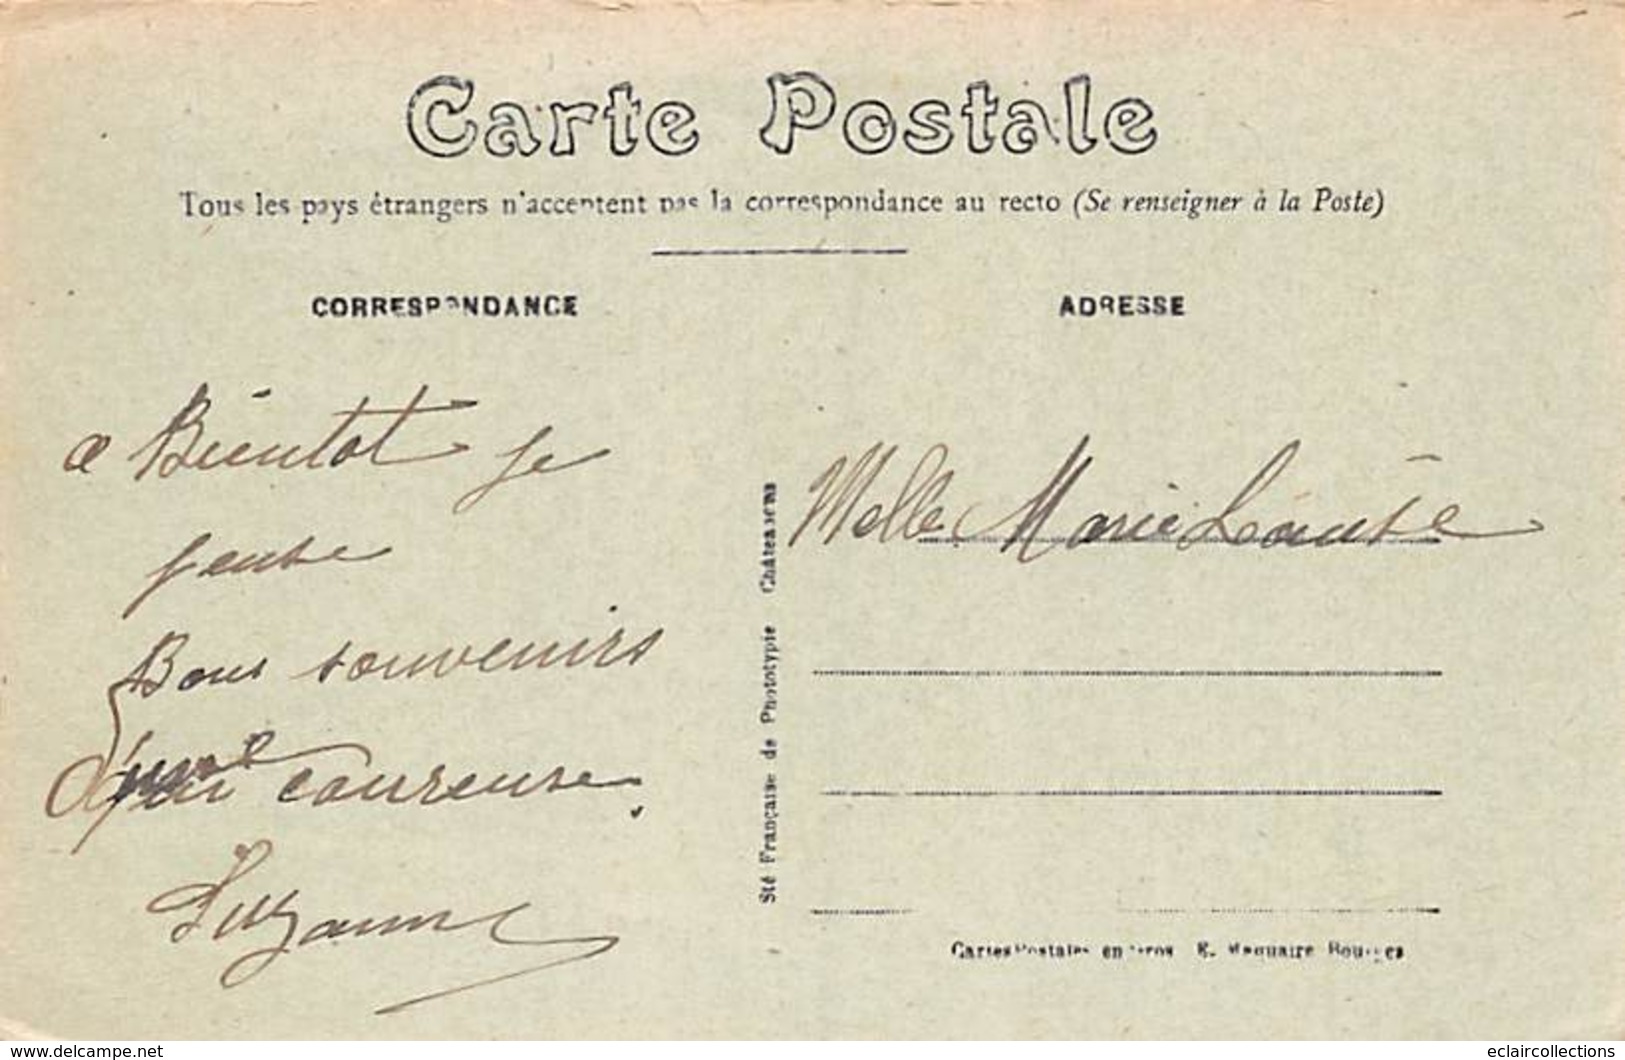 Carte Postale
Tous les pays étrangers n'acceptent pas la correspondance au recto (Se renseigner à la Poste)
CORRESPONDANCE
ADRESSE
a Bientot je
pense
Bons souvenirs
d'une coureuse.
Suzanne
Melle Marie Louise
Sté Française de Phototypie Châteauneuf
Cartes Postales en Gros E. Maquaire Bourges
www.delcampe.net
eclaircollections